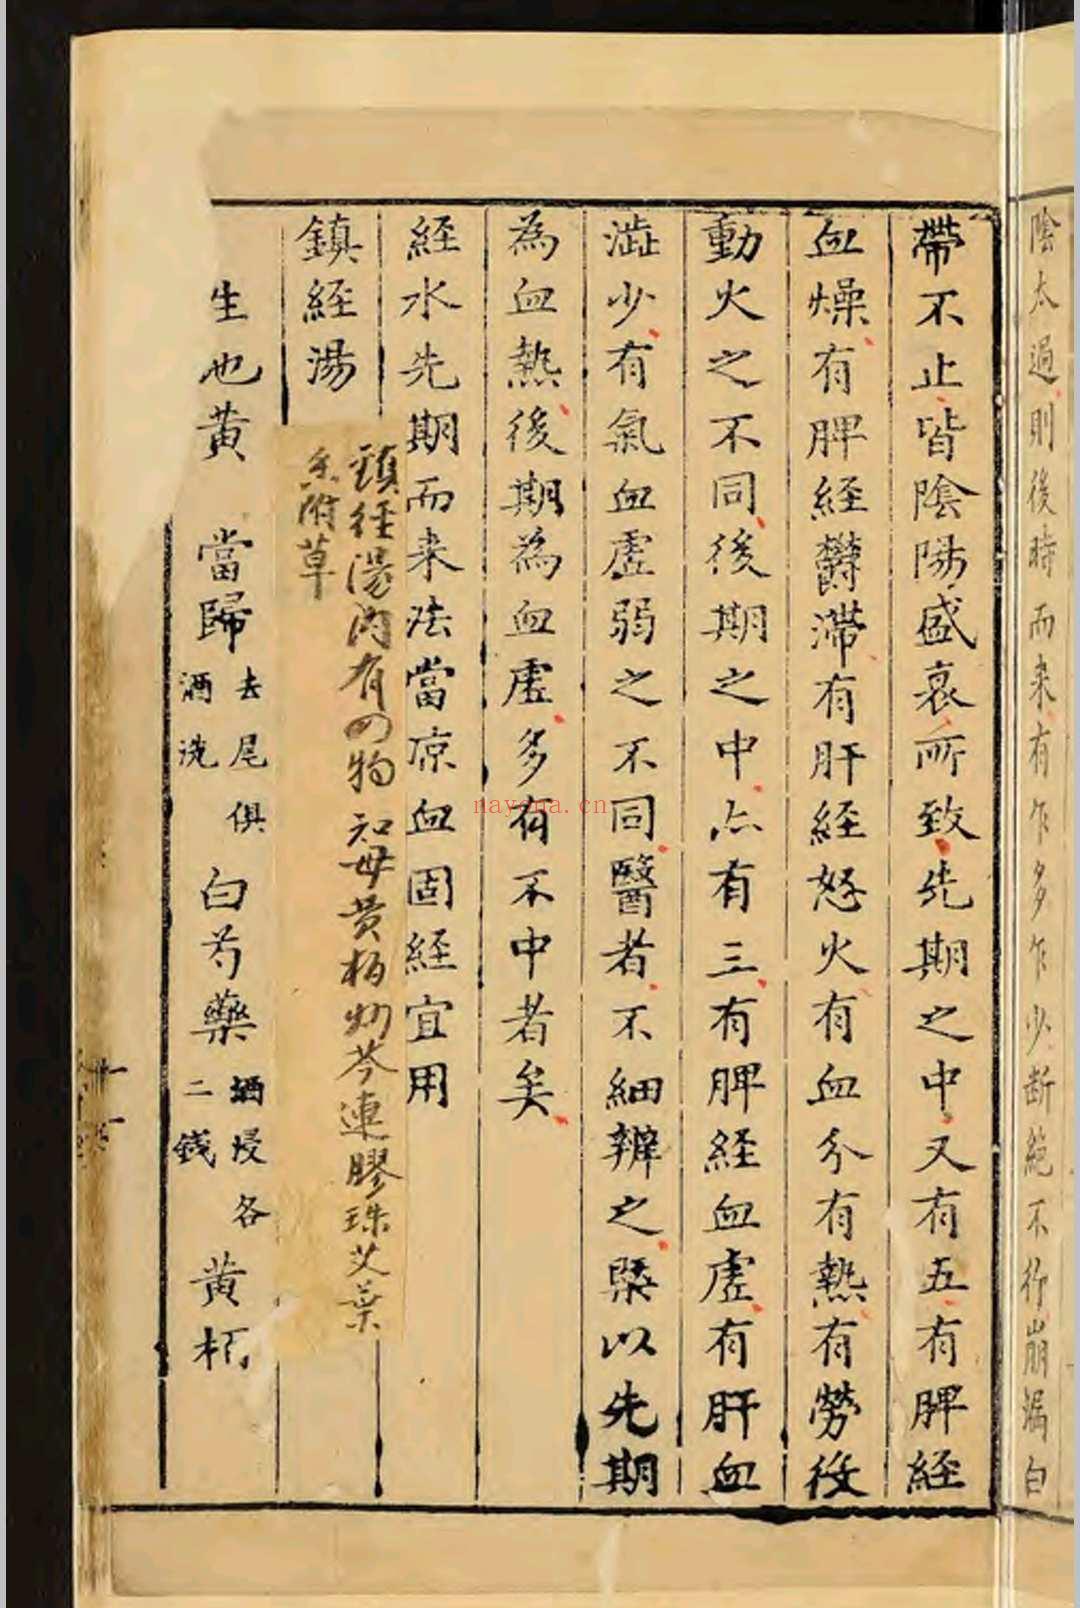 陰太過則後時而来有乍多乍少断絶不行崩漏白
帶不止皆陰陽盛衰所致先期之中又有五有脾経
血燥有脾経欝滞有肝経怒火有血分有熱有勞役
動火之不同後期之中亦有三有脾経血虚有肝血
澁少有氣血虚弱之不同醫者不細辨之槩以先期
為血熱後期為血虚多有不中者矣
経水先期而来法當凉血固経宜用
鎮経湯
鎮経湯内有四物知母黄柏炒芩連膠珠艾葉
香附草
生也黄 當歸去尾俱酒洗白芍藥酒浸各二錢黄柏
nayona.cn